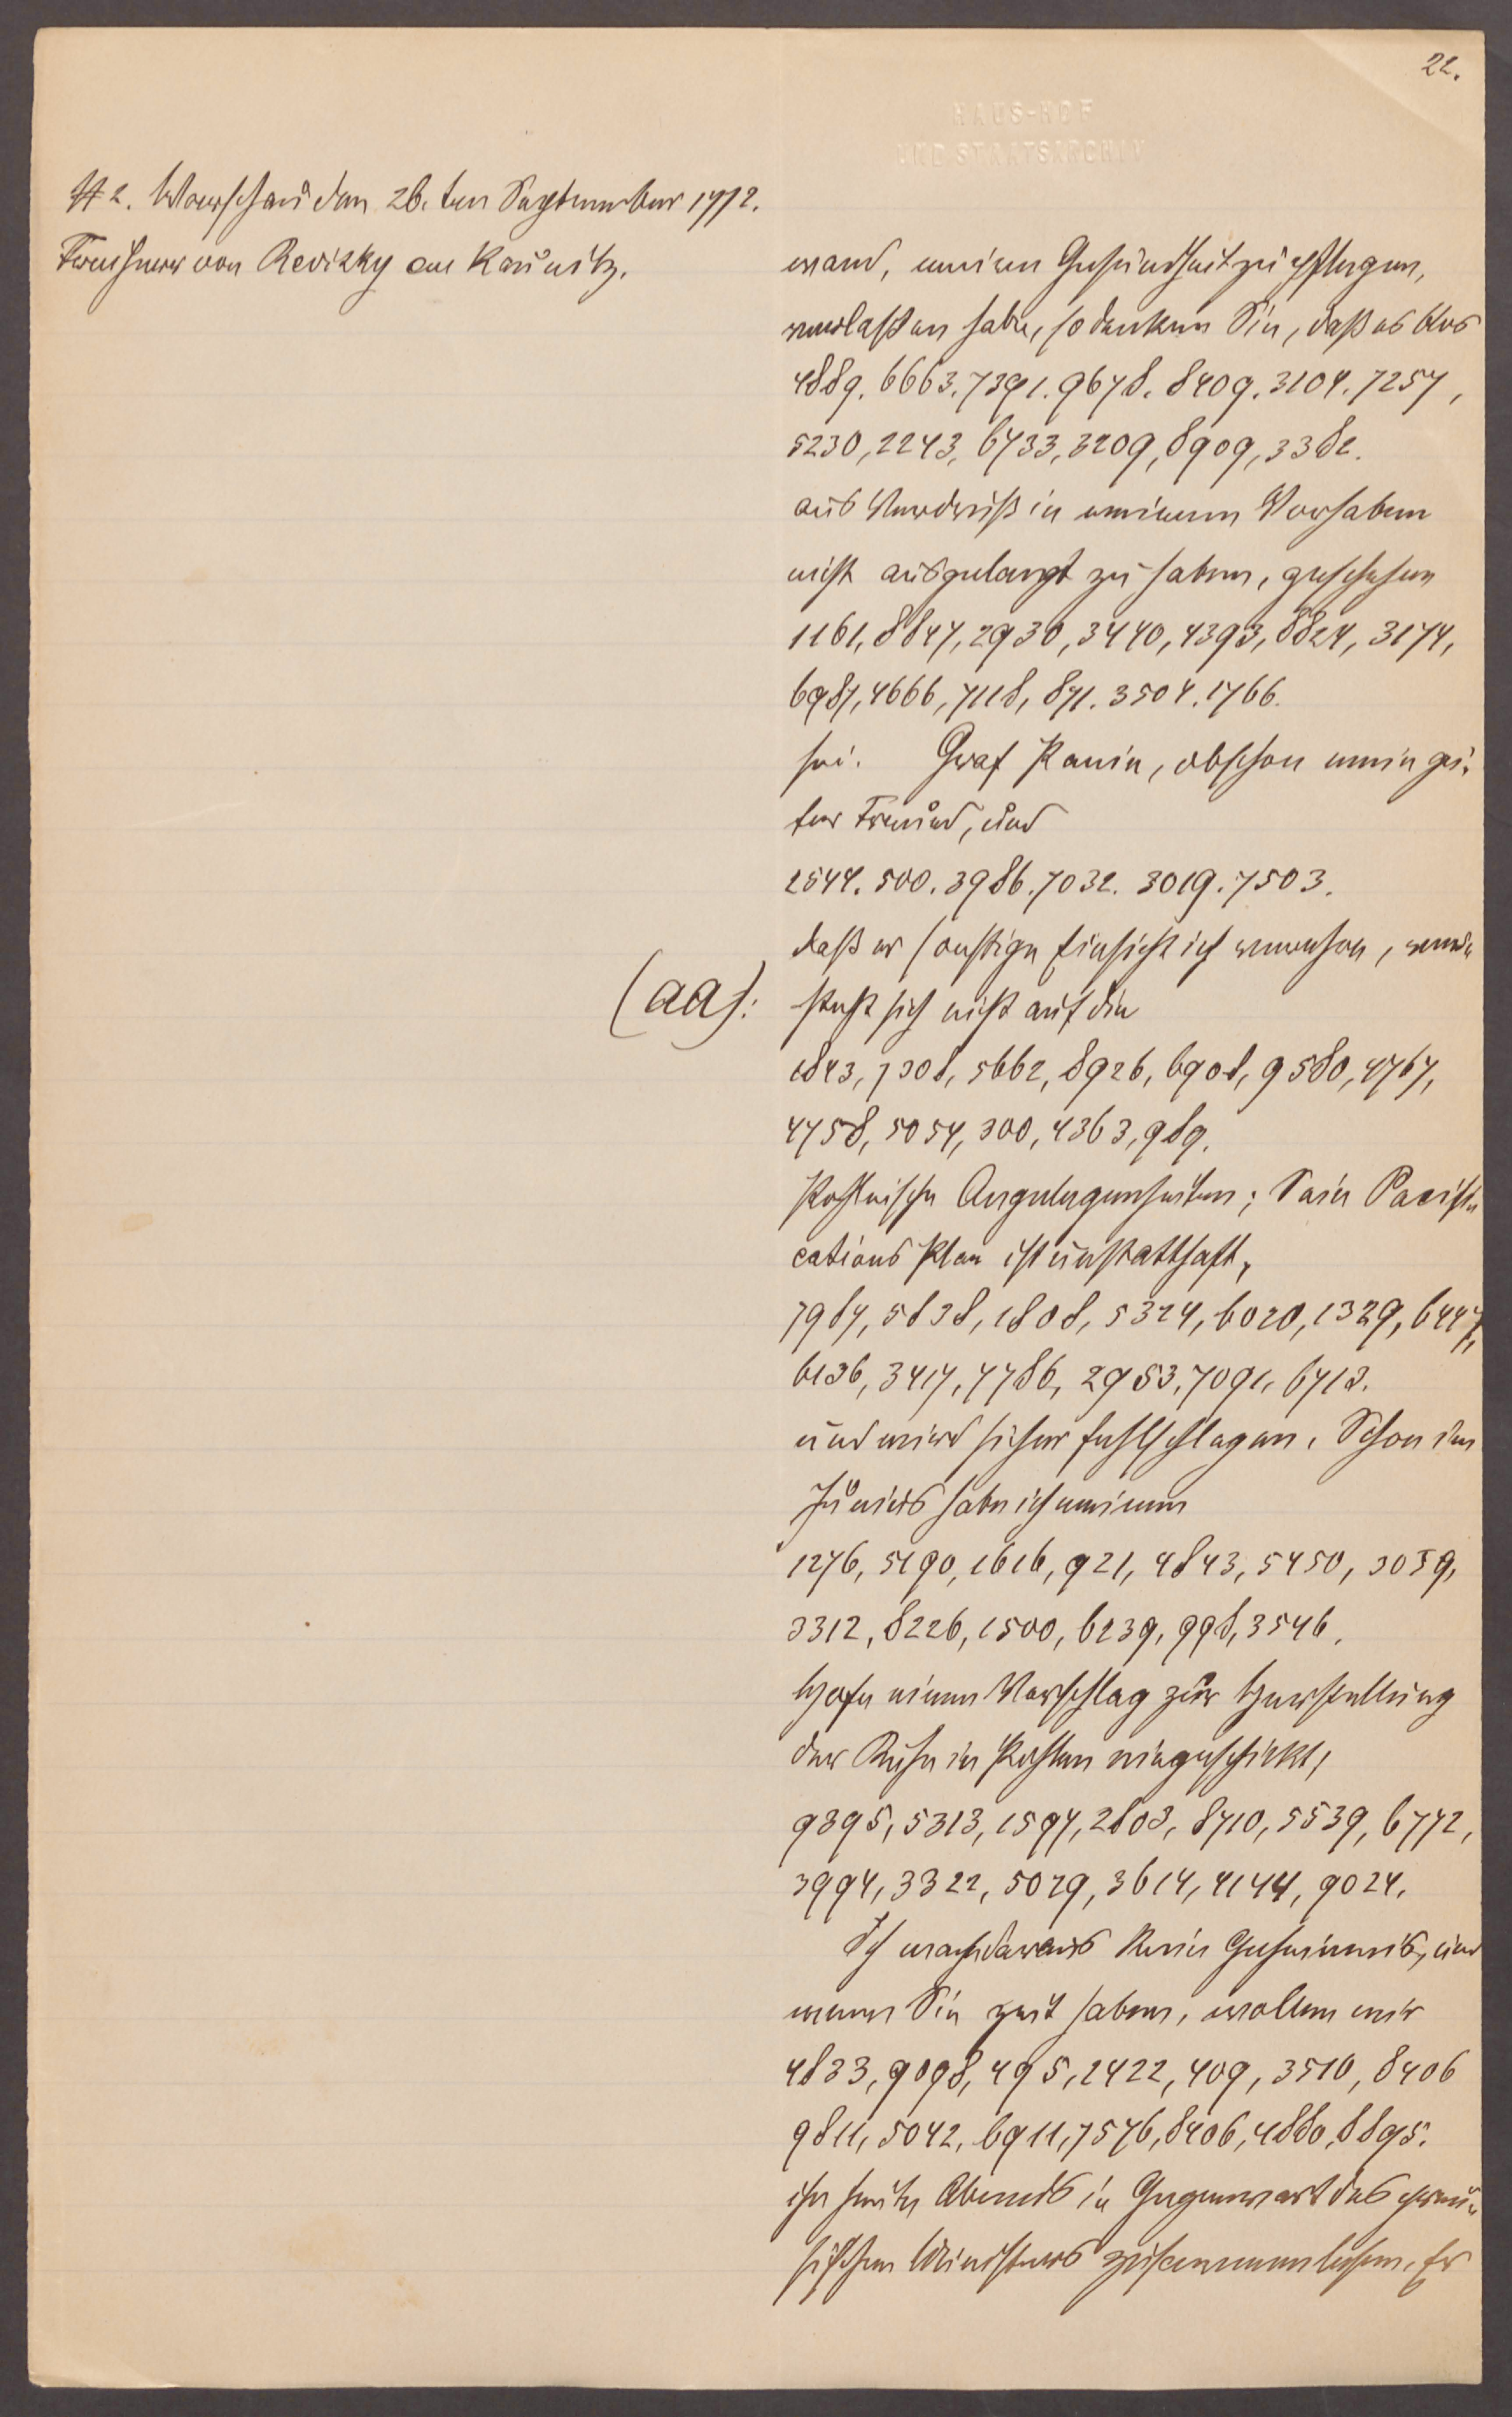 22.
HAUS-HOF
UND STAATSARCHIV
# 2. Warschau den 26. ten September 1772.
Freiherr von Revizky an Kaunitz.
wand, meiner Gesundheit zu pflegen,
verlaßen habe, so denken Sie, daß es blos
4889. 6663. 7391. 9678. 8409. 3104. 7257,
5230, 2243, 6733, 3209, 8909, 3382.
aus Verdruß in meinem Vorhaben
nicht ausgelangt zu haben, geschehen
1161, 8847, 2930, 3440, 4393, 8824, 3174,
6987, 4666, 7118, 871. 3504. 1766.
sei. Graf Panin, obschon mein gu-
ter Freund, und
2544. 500. 3986. 7032. 3019. 7503.
daß er sonstige Einsicht ich verehre, ver-
steht sich nicht auf die
(aa):
1843, 7308, 5662, 8926, 6908, 9580, 4767,
4758, 5054, 300, 4363, 989.
Pohlnische Angelegenheiten; Sein Pacifi-
cations Plan ist unstatthaft,
7987, 5838, 1808, 5324, 6020, 1329, 6447,
6136, 3417, 7786, 2953, 7091, 6713.
und wird sicher fehlschlagen. Schon im
Junius habe ich meinem
1276, 5190, 1616, 921, 4843, 5450, 3059,
3312, 8226, 1500, 6239, 998, 3546.
Hofe einen Vorschlag zur Herstellung
der Ruhe in Pohlen eingeschickt,
9395, 5313, 1597, 2803, 8710, 5539, 6772,
3994, 3322, 5029, 3614, 4144, 9024.
Ich mache daraus kein Geheimnis, und
wenn Sie Zeit haben, wollen wir
4833, 9098, 495, 2422, 409, 3510, 8406
9811, 5042, 6911, 7576, 8406, 4880, 8895.
ihn heute Abends in Gegenwart des preu-
sischen Ministers zusammen lesen. Er